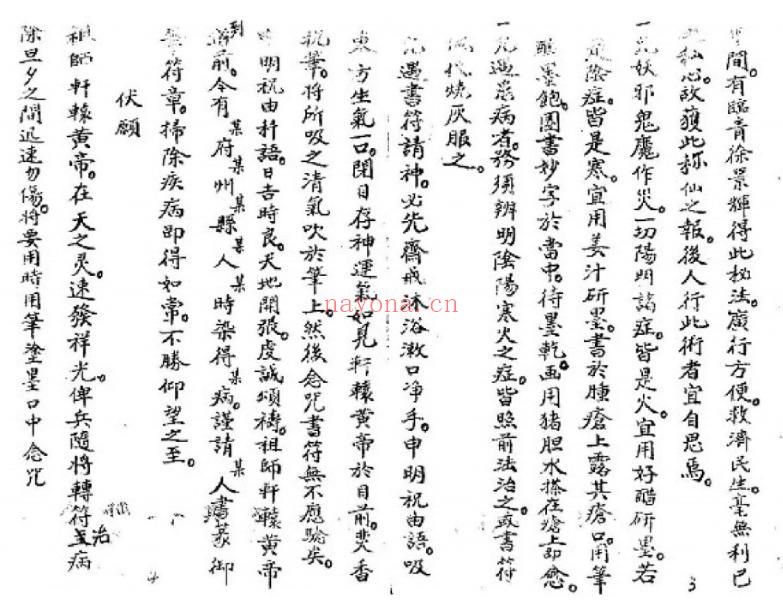 間。有臨青徐景輝得此秘法。廣行方便。救濟民生。毫無利己
私心。故獲此称仙之報。後人行此術者。宜自思焉。
一凡妖邪鬼魔作災。一切陽明諸症。皆是火。宜用好醋研墨。若
是陰症。皆是寒。宜用姜汁研墨。書於腫瘡上。露其瘡口。用筆
醮墨飽。圈書妙字於當中。待墨乾。画用猪胆水搽在瘡上即愈。
一凡遇患病者。務須辨明陰陽寒火之症。皆照前法治之。或書符
代燒灰服之。
凡遇書符請神。必先齋戒沐浴。漱口净手。申明祝由語。吸
東方生氣一口。閉目存神運氣。如見軒轅黄帝於目前。焚香
祝筆。將所吸之清氣吹於筆上。然後念咒書符。無不應驗矣。
明祝由科語。日吉時良。天地開張。虔誠頌禱。祖師軒轅黄帝
到
前。今有某府某州某縣某人某時染得某病。謹請某人書篆御
符章。掃除疾病。即得如常。不勝仰望之至。
伏願
祖師軒轅黄帝。在天之灵。速發祥光。俾兵隨將轉。符至病
治
除。旦夕之間。迅速勿傷。將要用時。用筆塗墨。口中念咒
4
3
nayona.cn